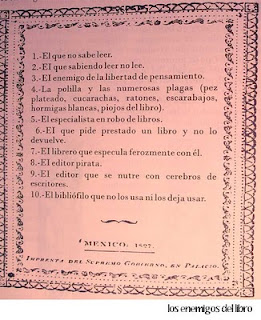 1.-El que no sabe leer.
2.-El que sabiendo leer no lee.
3.-El enemigo de la libertad de pensamiento.
4.-La polilla y las numerosas plagas (pez
plateado, cucarachas, ratones, escarabajos,
hormigas blancas, piojos del libro).
5.-El especialista en robo de libros.
6.-El que pide prestado un libro y no lo
devuelve.
7.-El librero que especula ferozmente con él.
8.-El editor pirata.
9.-El editor que se nutre con cerebros de
escritores.
10.-El bibliófilo que no los usa ni los deja usar.
MEXICO: 1827.
IMPRENTA DEL SUPREMO GOBIERNO, EN PALACIO.
los enemigos del libro